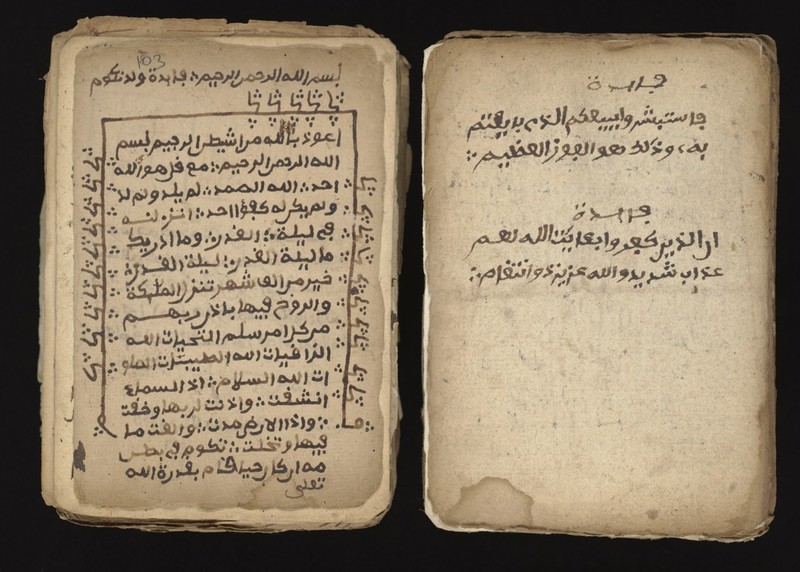 فايدة
فاستبشروا ببيعكم الذي بايعتم
به، وذلك هو الفوز العظيم
فايدة
ان الذين كفروا بايت الله لهم
عذاب شديد والله عزيز ذو انتقام
103
بسم الله الرحمن الرحيم فايدة ولد تكوم
اعوذ بالله من اشيطن الرجيم بسم
الله الرحمن الرحيم مع قل هو الله
احد الله الصمد لم يلد ولم لد
ولم يكن له كفؤا احد انزلنه
في ليلة القدر وما ادريك
ما ليلة القدر ليلة القدر
خير من الف شهر تنزل الملىكة
والروح فيها باذن ربهم
من كل امر سلم التحيات الله
الزاكيات الله الطيبات الصلو
ات الله السلام اذا السماء
انشقت واذنت لربها وحقت
واذا الارض مدت والقت ما
فيها وتخلت تكوم في بطن
مه ان كان حيا قام بقدرة الله
تعلى